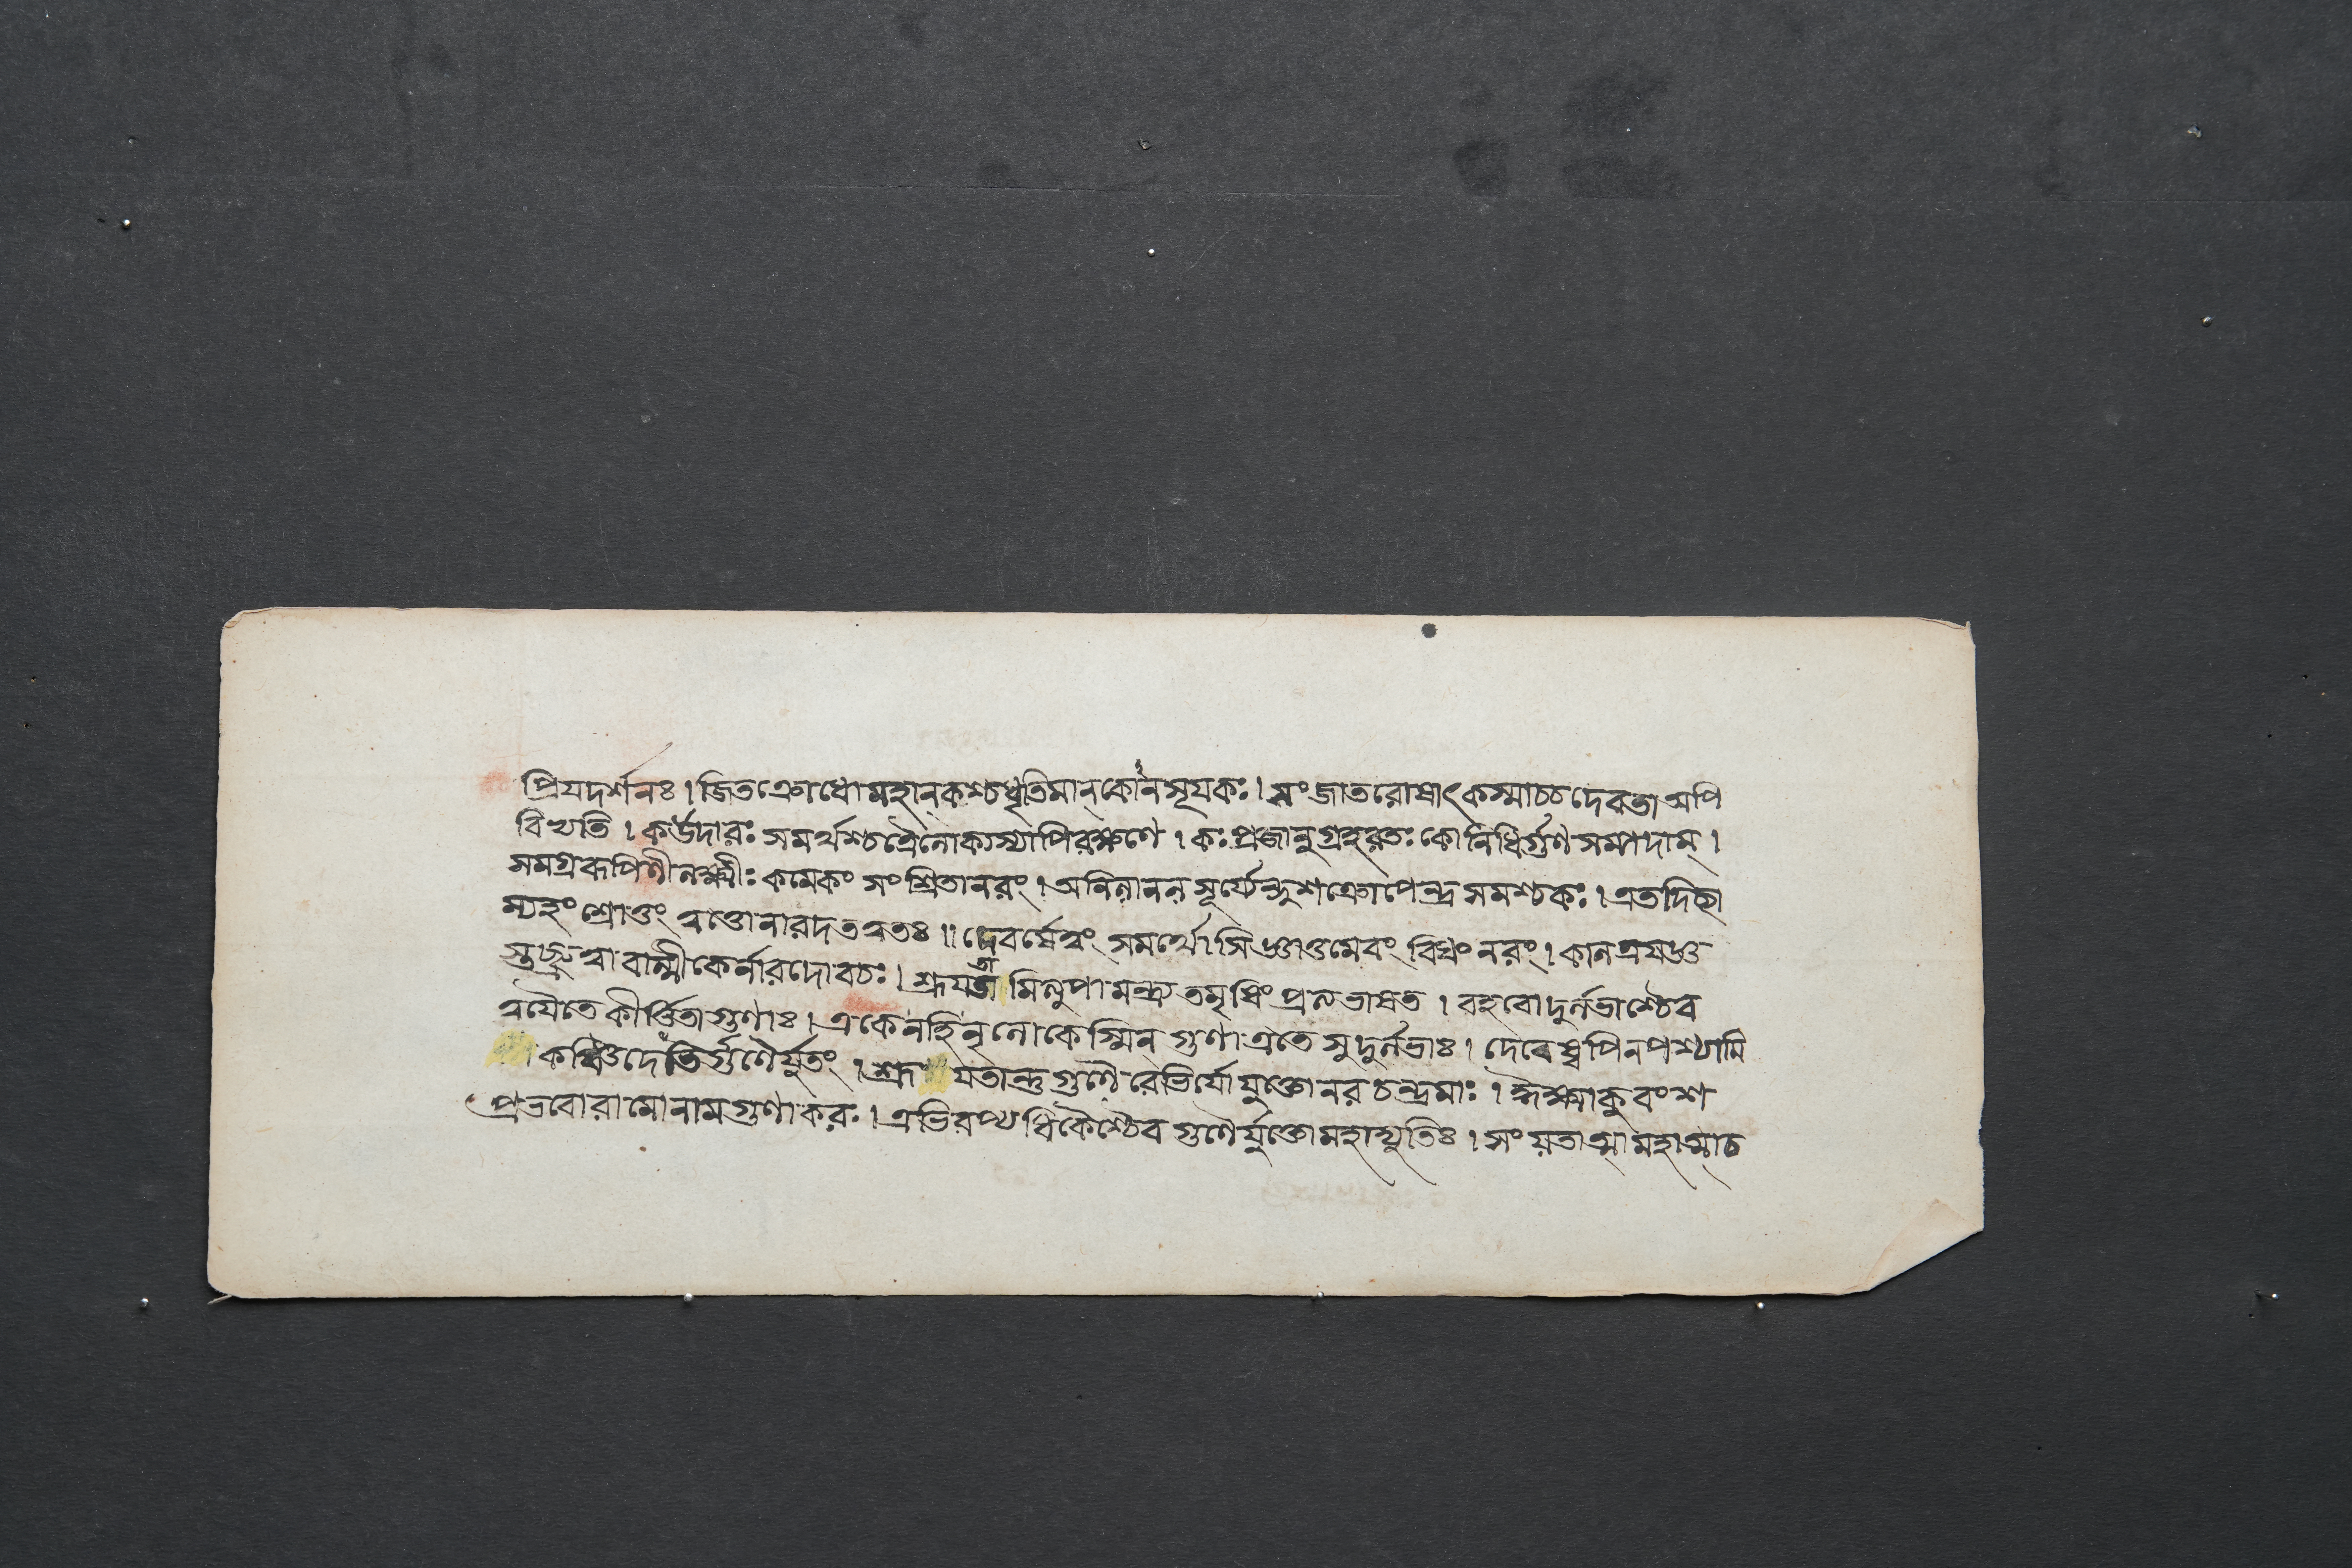 প্রিযদর্শনঃ। জিতক্রোধো মহান্ কশ্চ ধৃতিমান্ কোনসূযকঃ। সংজাতরোষাৎ কস্মাচ্চ দেবতা অপি
বিভ্যতি। কউদারঃ সমর্থশ্চ ত্রৈলোক্যস্যাপি রক্ষণে। কঃ প্রজানুগ্রহরতঃ কো নিধির্গুণসম্পদাম্।
সমগ্ররূপিণী লক্ষ্মীঃ কমেকং সংশ্রিতা নরং। অনিলানলসূর্য্যেন্দুশক্রোপেন্দ্রসমশ্চ কঃ। এতদিচ্ছা
ম্যহং শ্রোতুং ত্বত্তো নারদ তত্বতঃ॥ দেবর্ষে ত্বং সমর্থোসি জ্ঞাতুমেবং বিধং নরং। কালত্রযজ্ঞ
স্তচ্ছ্রুত্বা বাল্মীকের্নারদো বচঃ। শ্রূযতামিত্যুপামন্ত্র্য তমৃষিং প্রত্যভাষত। বহবো দুর্লভাশ্চৈব
ত্বযৈতে কীর্ত্তিতা গুণাঃ। একেন হি নৃলোকেস্মিন্ গুণা এতে সুদুর্লভাঃ। দেবেষ্বপি ন পশ্যামি
কঞ্চিদেভির্গুণৈর্যুতং। শ্রূযতান্তু গুণৈরেভির্যো যুক্তো নরচন্দ্রমাঃ। ইক্ষ্বাকুবংশ
প্রভবো রামো নাম গুণাকরঃ। এভিরপ্যধিকৈশ্চৈব গুণৈর্যুক্তো মহাদ্যুতিঃ। সংযতাত্মা মহাত্মা চ